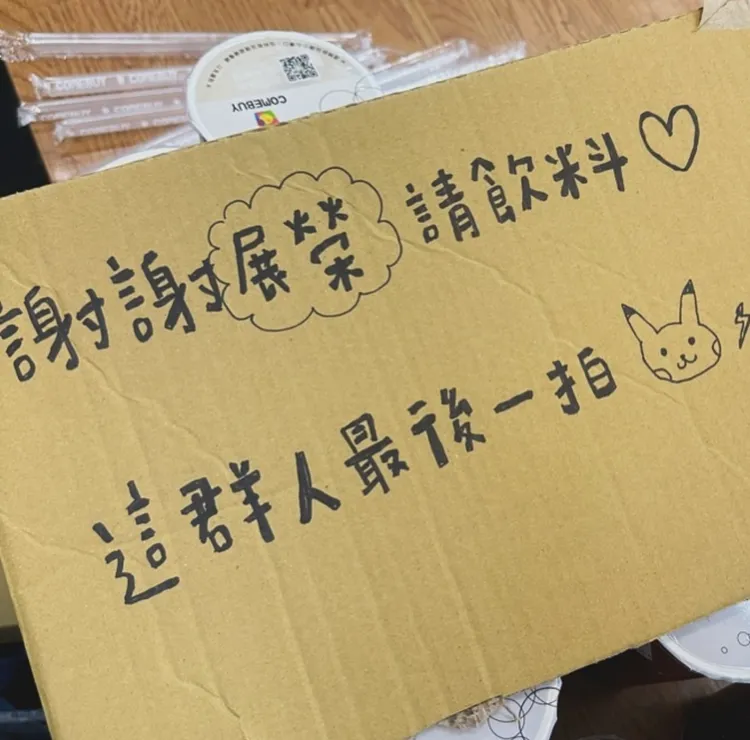 COMEBUY
COMEBUY
COMEBUY
謝謝展榮請飲料♡
這群人最後一拍